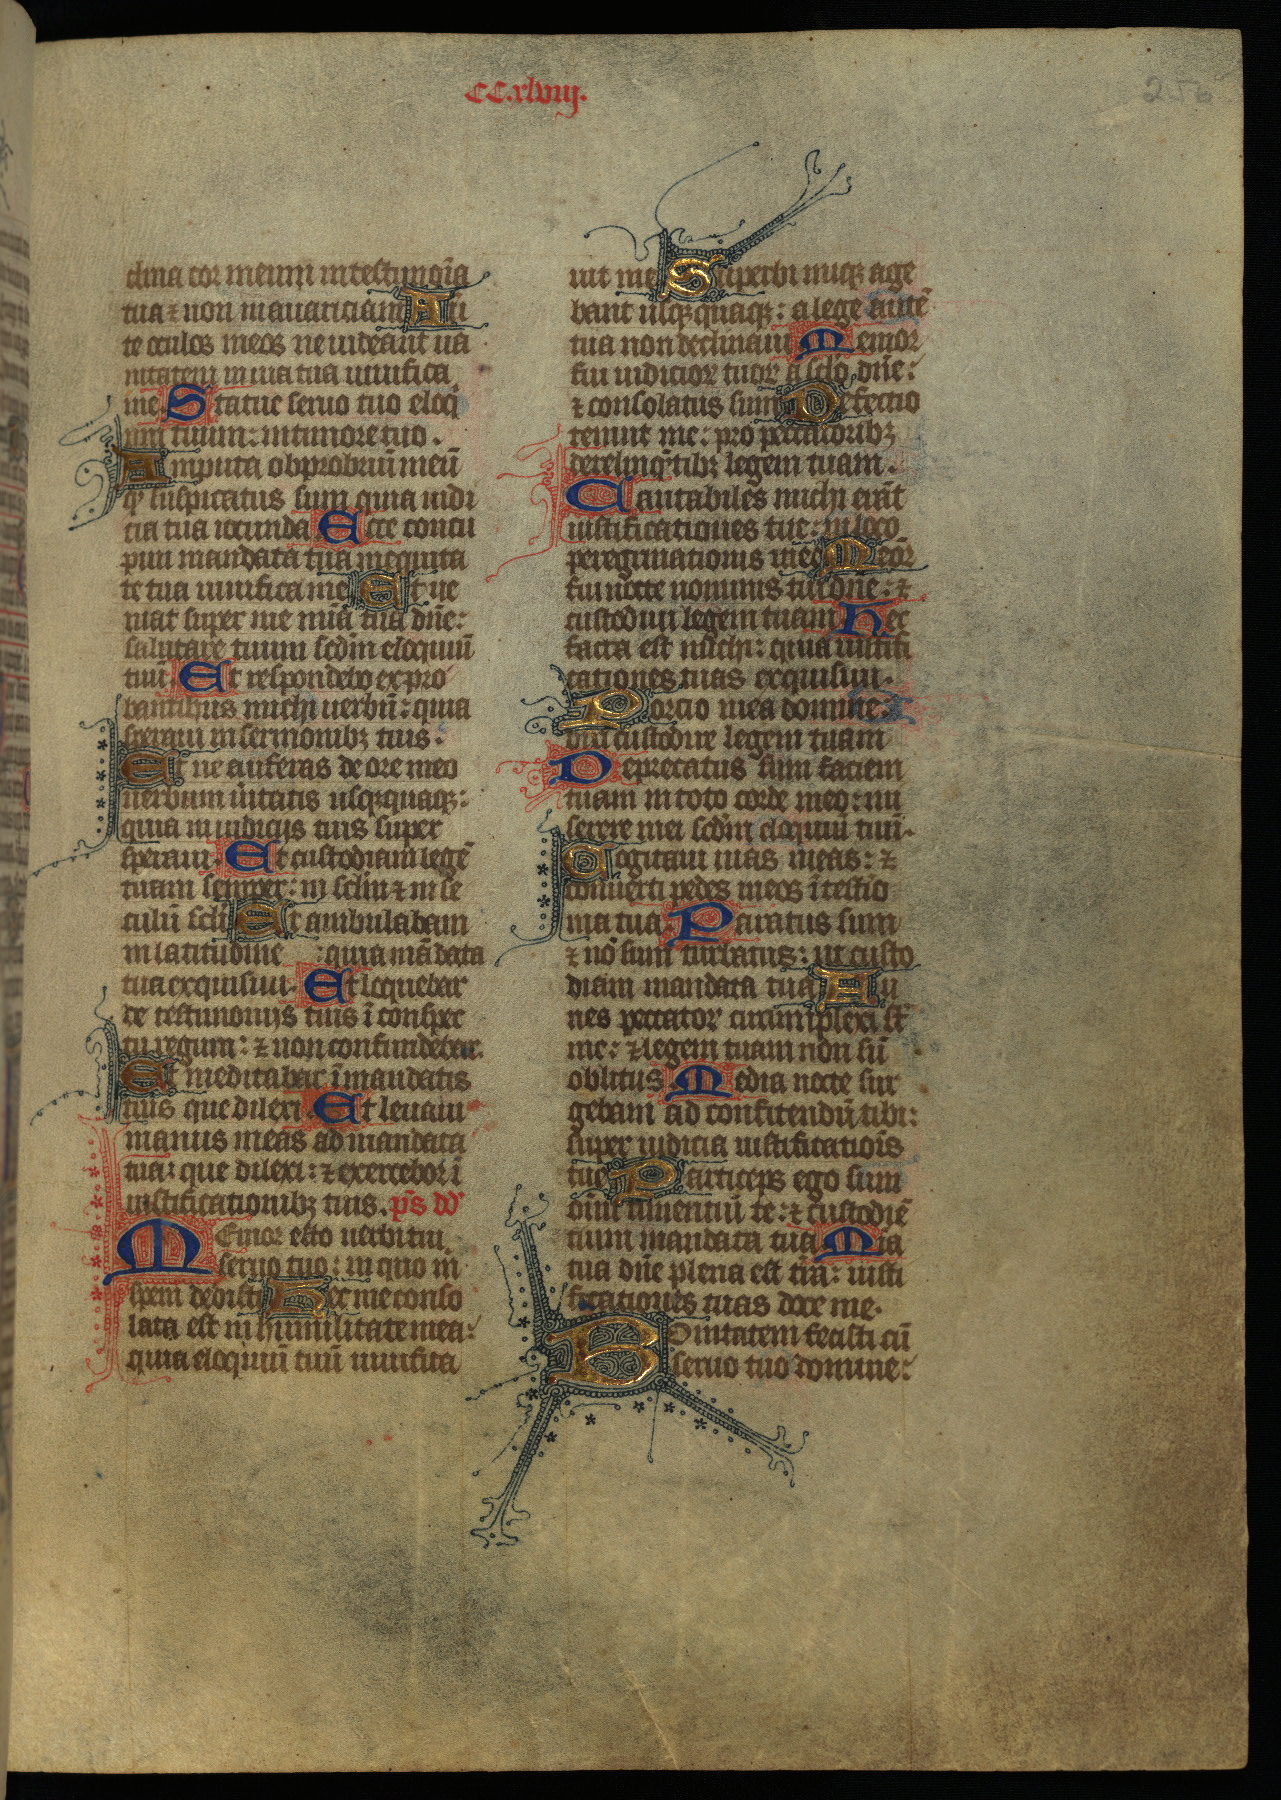 CC.xlviij.
256
clina cor meum in testimōia
tua ⁊ non in auariciam Auer
te oculos meos ne uideant ua
nitatem in uia tua uiuifica
me. Statue seruo tuo eloq̄
um tuum: in timore tuo.
Amputa obprobriū meū
qd̄ suspicatus sum quia iudi
cia tua iocunda Ecce concu
piui mandata tua in equita
te tua uiuifica me Et ue
niat super me mīa tua dn̄e:
salutare tuum scdm̄ eloquiū
tuū Et respondebo expro
brantibus michi uerbū: quia
speraui in sermonibꝫ tuis.
Et ne auferas de ore meo
uerbum ūitatis usqꝫquaqꝫ:
quia in iudicijs tuis super
speraui. Et custodiam legē
tuam semper: in sclm̄ ⁊ in se
culū scli Et ambulabam
in latitudine : quia mādata
tua exquisiui. Et loquebar
de testimonijs tuis ī conspec
tu regum: ⁊ non confundebar.
Et meditabar ī mandatis
tuis que dilexi. Et leuaui
manus meas ad mandata
tua: que dilexi: ⁊ exercebor ī
iustificationibꝫ tuis. ps dd
Memor esto uerbi tui
seruo tuo: in quo m
spem dedisti Hec me conso
lata est in humilitate mea:
quia eloquiū tuū uiuifica
uit me Superbi iniqꝫ age
bant usqꝫquaqꝫ: a lege autē
tua non declinaui Memor
fui iudicioꝝ tuoꝝ a sclo dn̄e:
⁊ consolatus sum Defectio
tenuit me: pro peccatoribꝫ
derelinq̄tibꝫ legem tuam.
Cantabiles michi erāt
iustificationes tue: in loco
peregrinationis mee Memor
fui nocte nominis tui dn̄e: ⁊
custodiui legem tuam Hec
facta est michi: quia iustifi
cationes tuas exquisiui.
Porcio mea domine:
dixi custodire legem tuam
Deprecatus sum faciem
tuam in toto corde meo: mi
serere mei scdm̄ eloquiū tuū.
Cogitaui uias meas: ⁊
conuerti pedes meos ī testīo
nia tua. Paratus sum
⁊ nō sum turbatus: ut custo
diam mandata tua Fu
nes peccatoꝝ circumplexi st̄
me: ⁊ legem tuam non sū
oblitus Media nocte sur
gebam ad confitendū tibi:
super iudicia iustificatiōis
tue Particeps ego sum
oīm timentiū te: ⁊ custodiē
tium mandata tua Mīa
tua dn̄e plena est tr̄a: iusti
ficationes tuas doce me.
Bonitatem fecisti cū
seruo tuo domine: